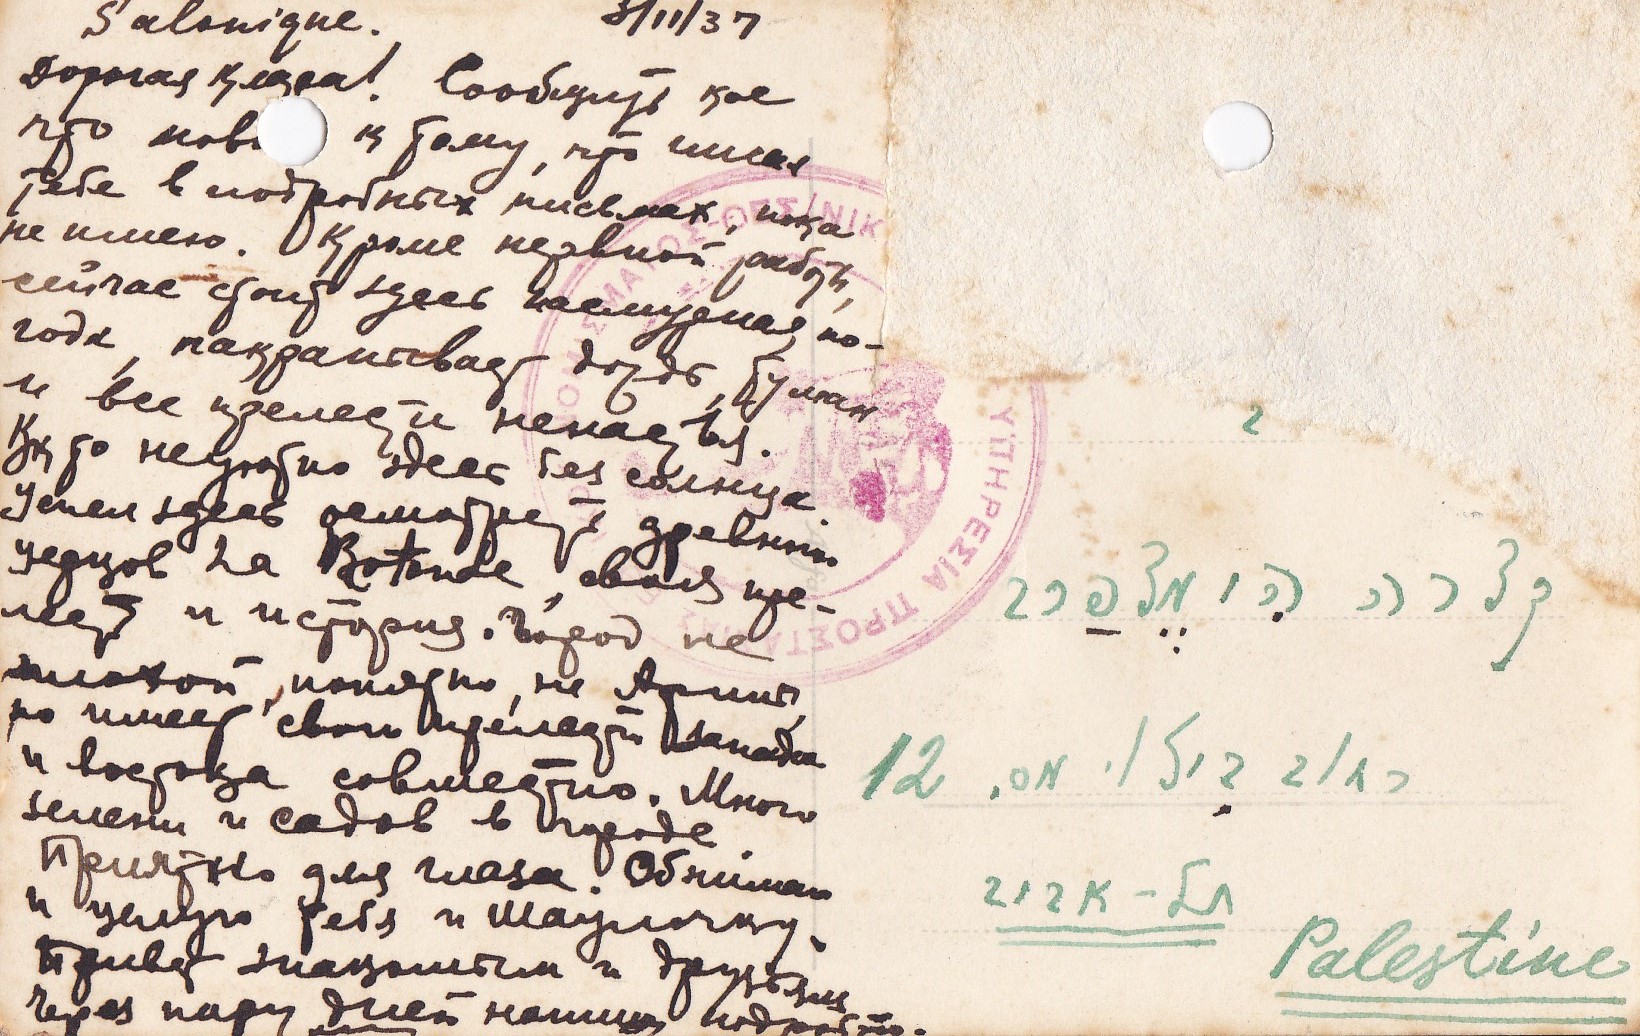 Salonique. 3/11/37
Дорогая Клара! Сообщить кое
что нов к тому, что писал
тебе в подробных письмах, пока
не имею. Кроме нервной работы,
сейчас стоит здесь пасмурная по-
года, накрапывает дождь, туман
и все прелести ненастья.
неуютно здесь без солнца.
Успел здесь осмотреть древний
La Rotonde, своя пре-
лесть и история. Город не
плохой, понятно, не
но имеет свои прелести запада
и востока совместно. Много
зелени и садов в городе
Приятно для глаза. Обнимаю
и целую тебя и Шаулочку.
Привет знакомым и друзьям
Через пару дней напишу подробно.
ΥΠΗΡΕΣΙΑ ΠΡΟΣΤΑΣΙΑΣ
קלרה
רחוב בילו מס. 12
תל-אביב
Palestine